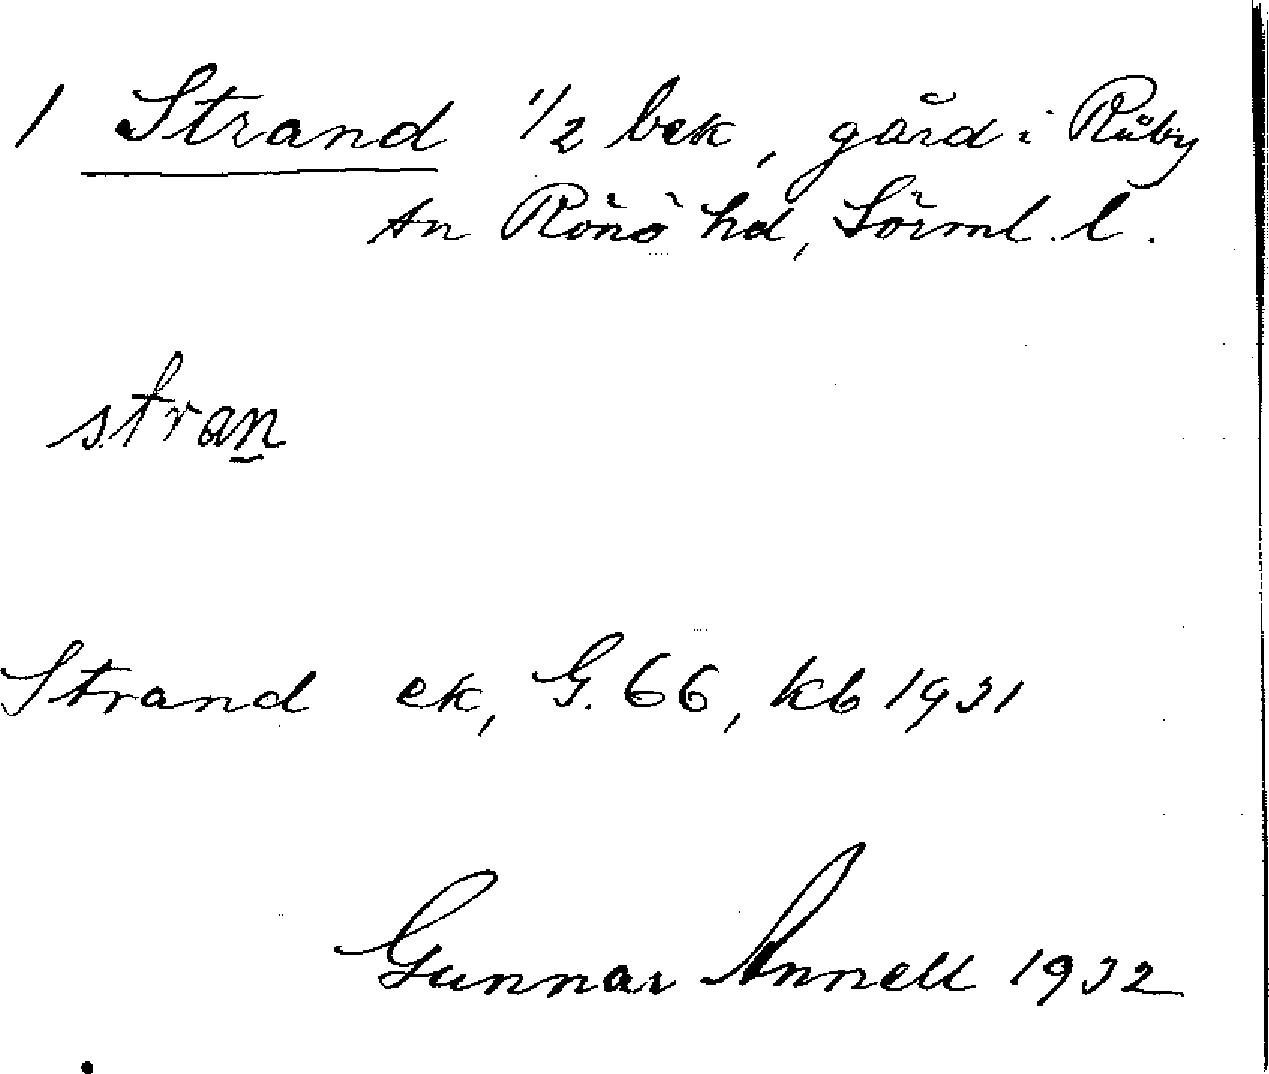 1 Strand 1/2 bek, gård i Råby
sn Rönö hd, Sörml. l.
stran
Strand ek, G. 66, kb 1931
Gunnar Annell 1932